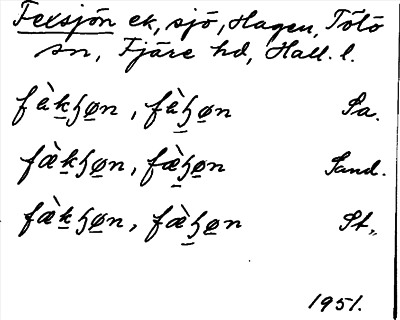 Fexsjön ek, sjö, Hagen, Tölö
sn, Fjäre hd, Hall. l.
fàkɧøn, fàɧøn Sa.
fæ̀kɧøn, fæ̀ɧøn Sand.
fæ̀kɧøn, fæ̀ɧøn St„
1951.